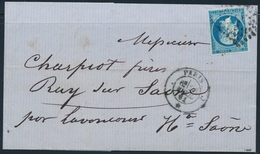 Messieurs
Charpiot frères
Ray sur Saône
par Lavoncourt Hte Saône
PARIS